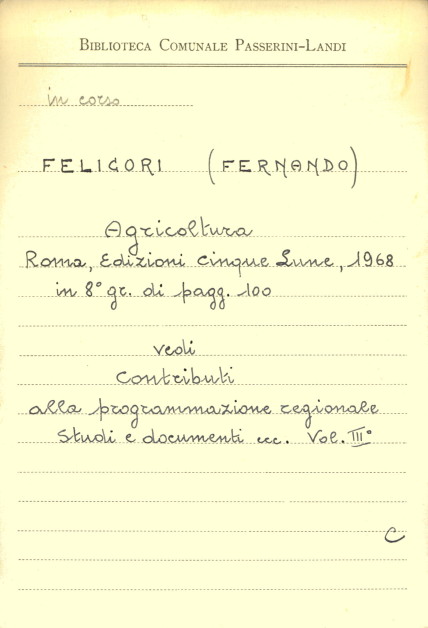 BIBLIOTECA COMUNALE PASSERINI-LANDI
in corso
FELICORI (FERNANDO)
Agricoltura
Roma, Edizioni Cinque Lune, 1968
in 8° gr. di pagg. 100
vedi
Contributi
alla programmazione regionale
Studi e documenti ecc. Vol. III°
C